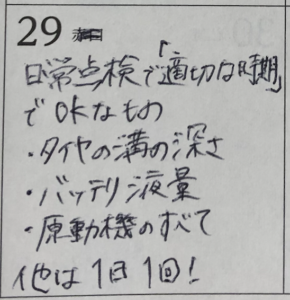 29
日常点検で「適切な時期」
でOKなもの
・タイヤの溝の深さ
・バッテリ液量
・原動機のすべて
他は1日1回!